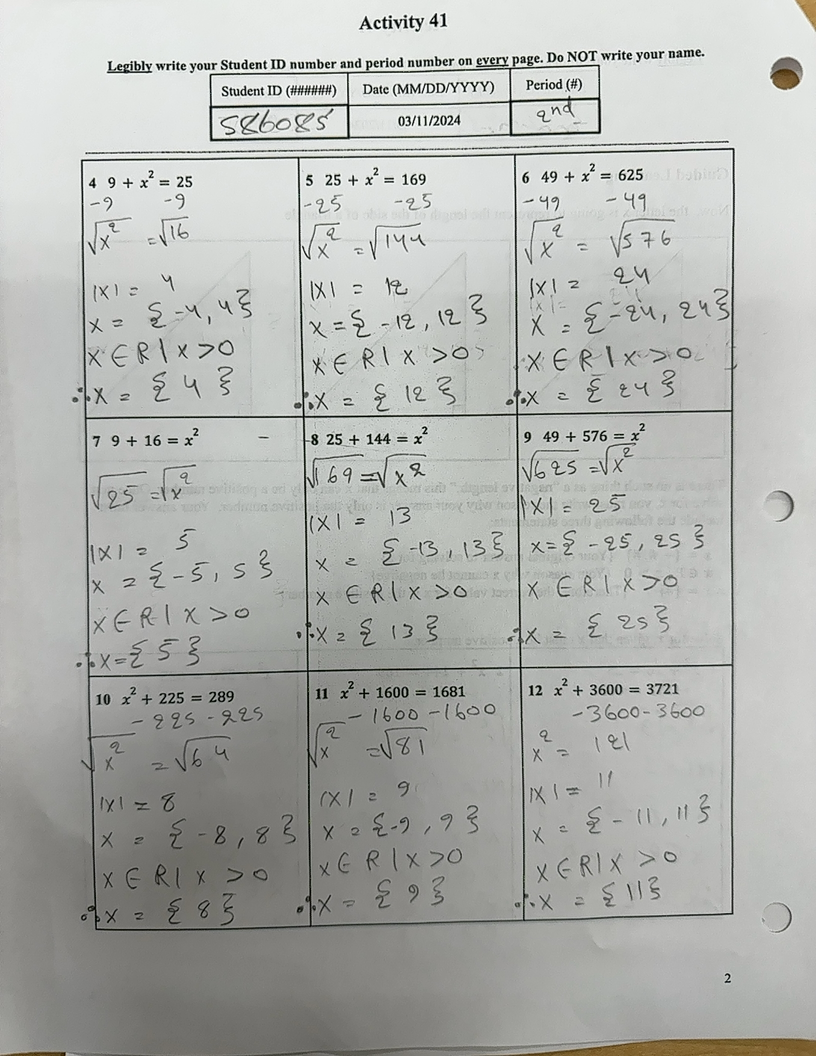 Activity 41
Legibly write your Student ID number and period number on every page. Do NOT write your name.
Student ID (######) Date (MM/DD/YYYY) Period (#)
586085 03/11/2024 2nd
4 9 + x² = 25
-9 -9
√x² = √16
|x| = 4
x = {-4, 4}
x ∈ R | x > 0
∴ x = {4}
5 25 + x² = 169
-25 -25
√x² = √144
|x| = 12
x = {-12, 12}
x ∈ R | x > 0
∴ x = {12}
6 49 + x² = 625
-49 -49
√x² = √576
|x| = 24
x = {-24, 24}
x ∈ R | x > 0
∴ x = {24}
7 9 + 16 = x²
√25 = √x²
|x| = 5
x = {-5, 5}
x ∈ R | x > 0
∴ x = {5}
8 25 + 144 = x²
√169 = √x²
|x| = 13
x = {-13, 13}
x ∈ R | x > 0
∴ x = {13}
9 49 + 576 = x²
√625 = √x²
|x| = 25
x = {-25, 25}
x ∈ R | x > 0
∴ x = {25}
10 x² + 225 = 289
-225 -225
√x² = √64
|x| = 8
x = {-8, 8}
x ∈ R | x > 0
∴ x = {8}
11 x² + 1600 = 1681
-1600 -1600
√x² = √81
|x| = 9
x = {-9, 9}
x ∈ R | x > 0
∴ x = {9}
12 x² + 3600 = 3721
-3600 -3600
x² = 121
|x| = 11
x = {-11, 11}
x ∈ R | x > 0
∴ x = {11}
2